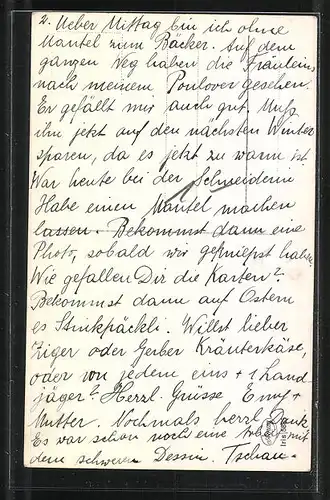 2. Ueber Mittag bin ich ohne
Mantel zum Bäcker. Auf dem
ganzen Weg haben die Fräuleins
nach meinem Poulover gesehen.
Er gefällt mir auch gut. Muss
ihn jetzt auf den nächsten Winter
sparen, da es jetzt zu warm ist
War heute bei der Schneiderin
Habe einen Mantel machen
lassen. Bekommst dann eine
Photo, sobald wir geknipst habe.
Wie gefallen Dir die Karten?
Bekommst dann auf Ostern
es Stinkpäckli. Willst lieber
Ziger oder Gerber Kräuterkäse,
oder von jedem eins + 1 Land
jäger? Herzl. Grüsse Emy +
Mutter. Nochmals herzl. Dank
Es war schon noch eine mit
dem schweren Dessin. Tschau.